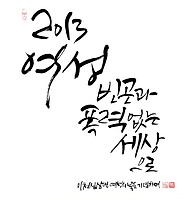 2013
여성
빈곤과
폭력없는
세상
으로